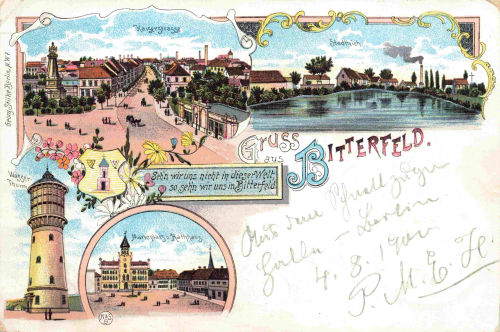 Kaiserstrasse
Stadtteich
Georg Stilke, Berlin, N.W.7.
Gruss
aus
BITTERFELD.
Wasser-
Thurm
Sehn wir uns nicht in dieser Welt,
so sehn wir uns in Bitterfeld
Marktplatz u. Rathhaus
Mit dem
Halle - Berlin
4. 8. 1900
P. M. E. H.